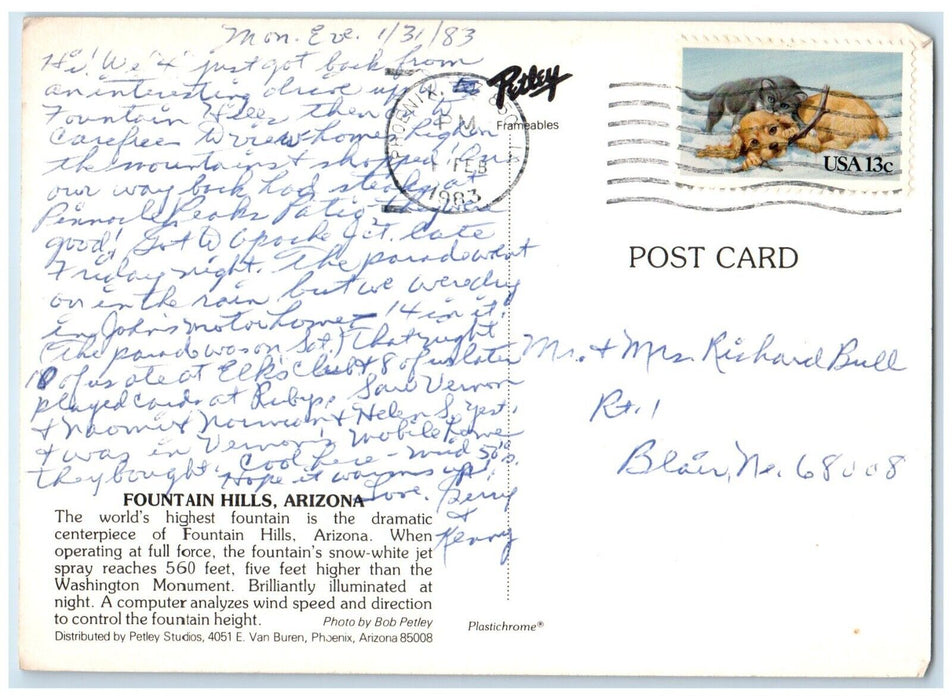 Mon. Eve. 1/31/83
Hi! We "4" just got back from
an interesting drive up to
Fountain Hills then to
Carefree & view homes high on
the mountains & shopped! On
our way back had steaks at
Pinnacle Peaks Patio, they're
good! Got to Apache Jct. late
Friday night. The parade went
on in the rain but we were dry
in John's motorhome - 14 in it!
(The parade was on Sat.) That night
10 of us ate at Elks Club & 8 of us later
played cards at Ruby's. Saw Vernon
& Naomi & Norman & Helen S. yest.
& was in Vernon's mobile home
they bought. Cool here - mid 50's.
Hope it warms up!
Love, Berry
&
Kenny
Petley
Frameables
PHOENIX,
PM
1 FEB
1983
USA 13c
POST CARD
Mr. & Mrs. Richard Bull
Rt. 1
Blair, Ne. 68008
FOUNTAIN HILLS, ARIZONA
The world's highest fountain is the dramatic
centerpiece of Fountain Hills, Arizona. When
operating at full force, the fountain's snow-white jet
spray reaches 560 feet, five feet higher than the
Washington Monument. Brilliantly illuminated at
night. A computer analyzes wind speed and direction
to control the fountain height. Photo by Bob Petley
Distributed by Petley Studios, 4051 E. Van Buren, Phoenix, Arizona 85008
Plastichrome®